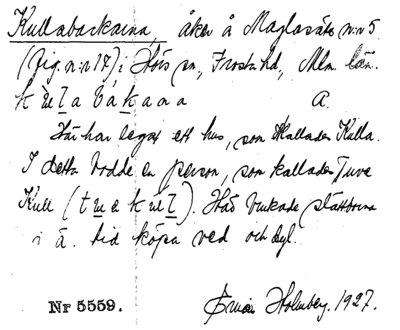 Kullabackarna, åker å Maglasäte n:r 5
(fig. n:r 17) i Hörs sn, Frosta hd, Mlm. län.
kulabákana A.
Här har legat ett hus, som kallades Kulla.
I detta bodde en person, som kallades Tuve
Kull (tuekul). Hos brukade slättborna
i ä. tid köpa ved och dyl.
Nr 5559. Holmberg. 1927.